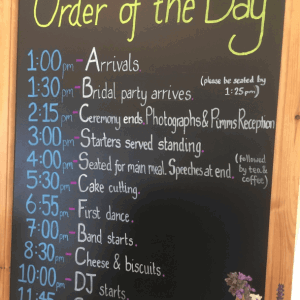 Order of the Day
1:00pm - Arrivals.
1:30pm - Bridal party arrives. (please be seated by 1:25pm)
2:15pm - Ceremony ends Photographs & Pimms Reception
3:00pm - Starters served standing.
4:00pm - Seated for main meal. Speeches at end. (followed by tea & coffee)
5:30pm - Cake cutting.
6:55pm - First dance.
7:00pm - Band starts.
8:30pm - Cheese & biscuits.
10:00pm - DJ starts.
11:45